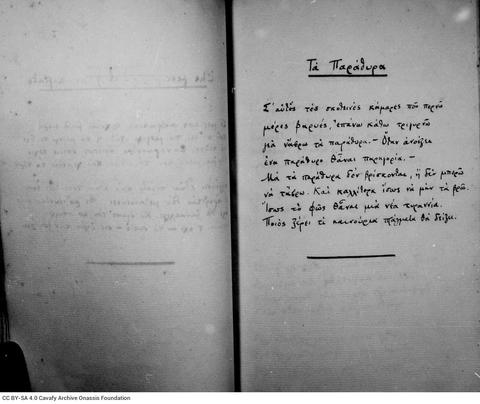 Τὰ Παράθυρα
Σ' αὐτὲς τὲς σκοτεινὲς κάμαρες ποῦ περνῶ
μέρες βαρυές, ἐπάνω κάτω τριγυρνῶ
γιὰ νἄβρω τὰ παράθυρα.— Ὅταν ἀνοίξει
ἕνα παράθυρο θἆναι παρηγορία.—
Μὰ τὰ παράθυρα δὲν βρίσκονται, ἢ δὲν μπορῶ
νὰ τἄβρω. Καὶ καλλίτερα ἴσως νὰ μὴν τὰ βρῶ.
Ἴσως τὸ φῶς θἆναι μιὰ νέα τυραννία.
Ποιὸς ξέρει τὶ καινούρια πράγματα θὰ δείξει.
CC BY-SA 4.0 Cavafy Archive Onassis Foundation